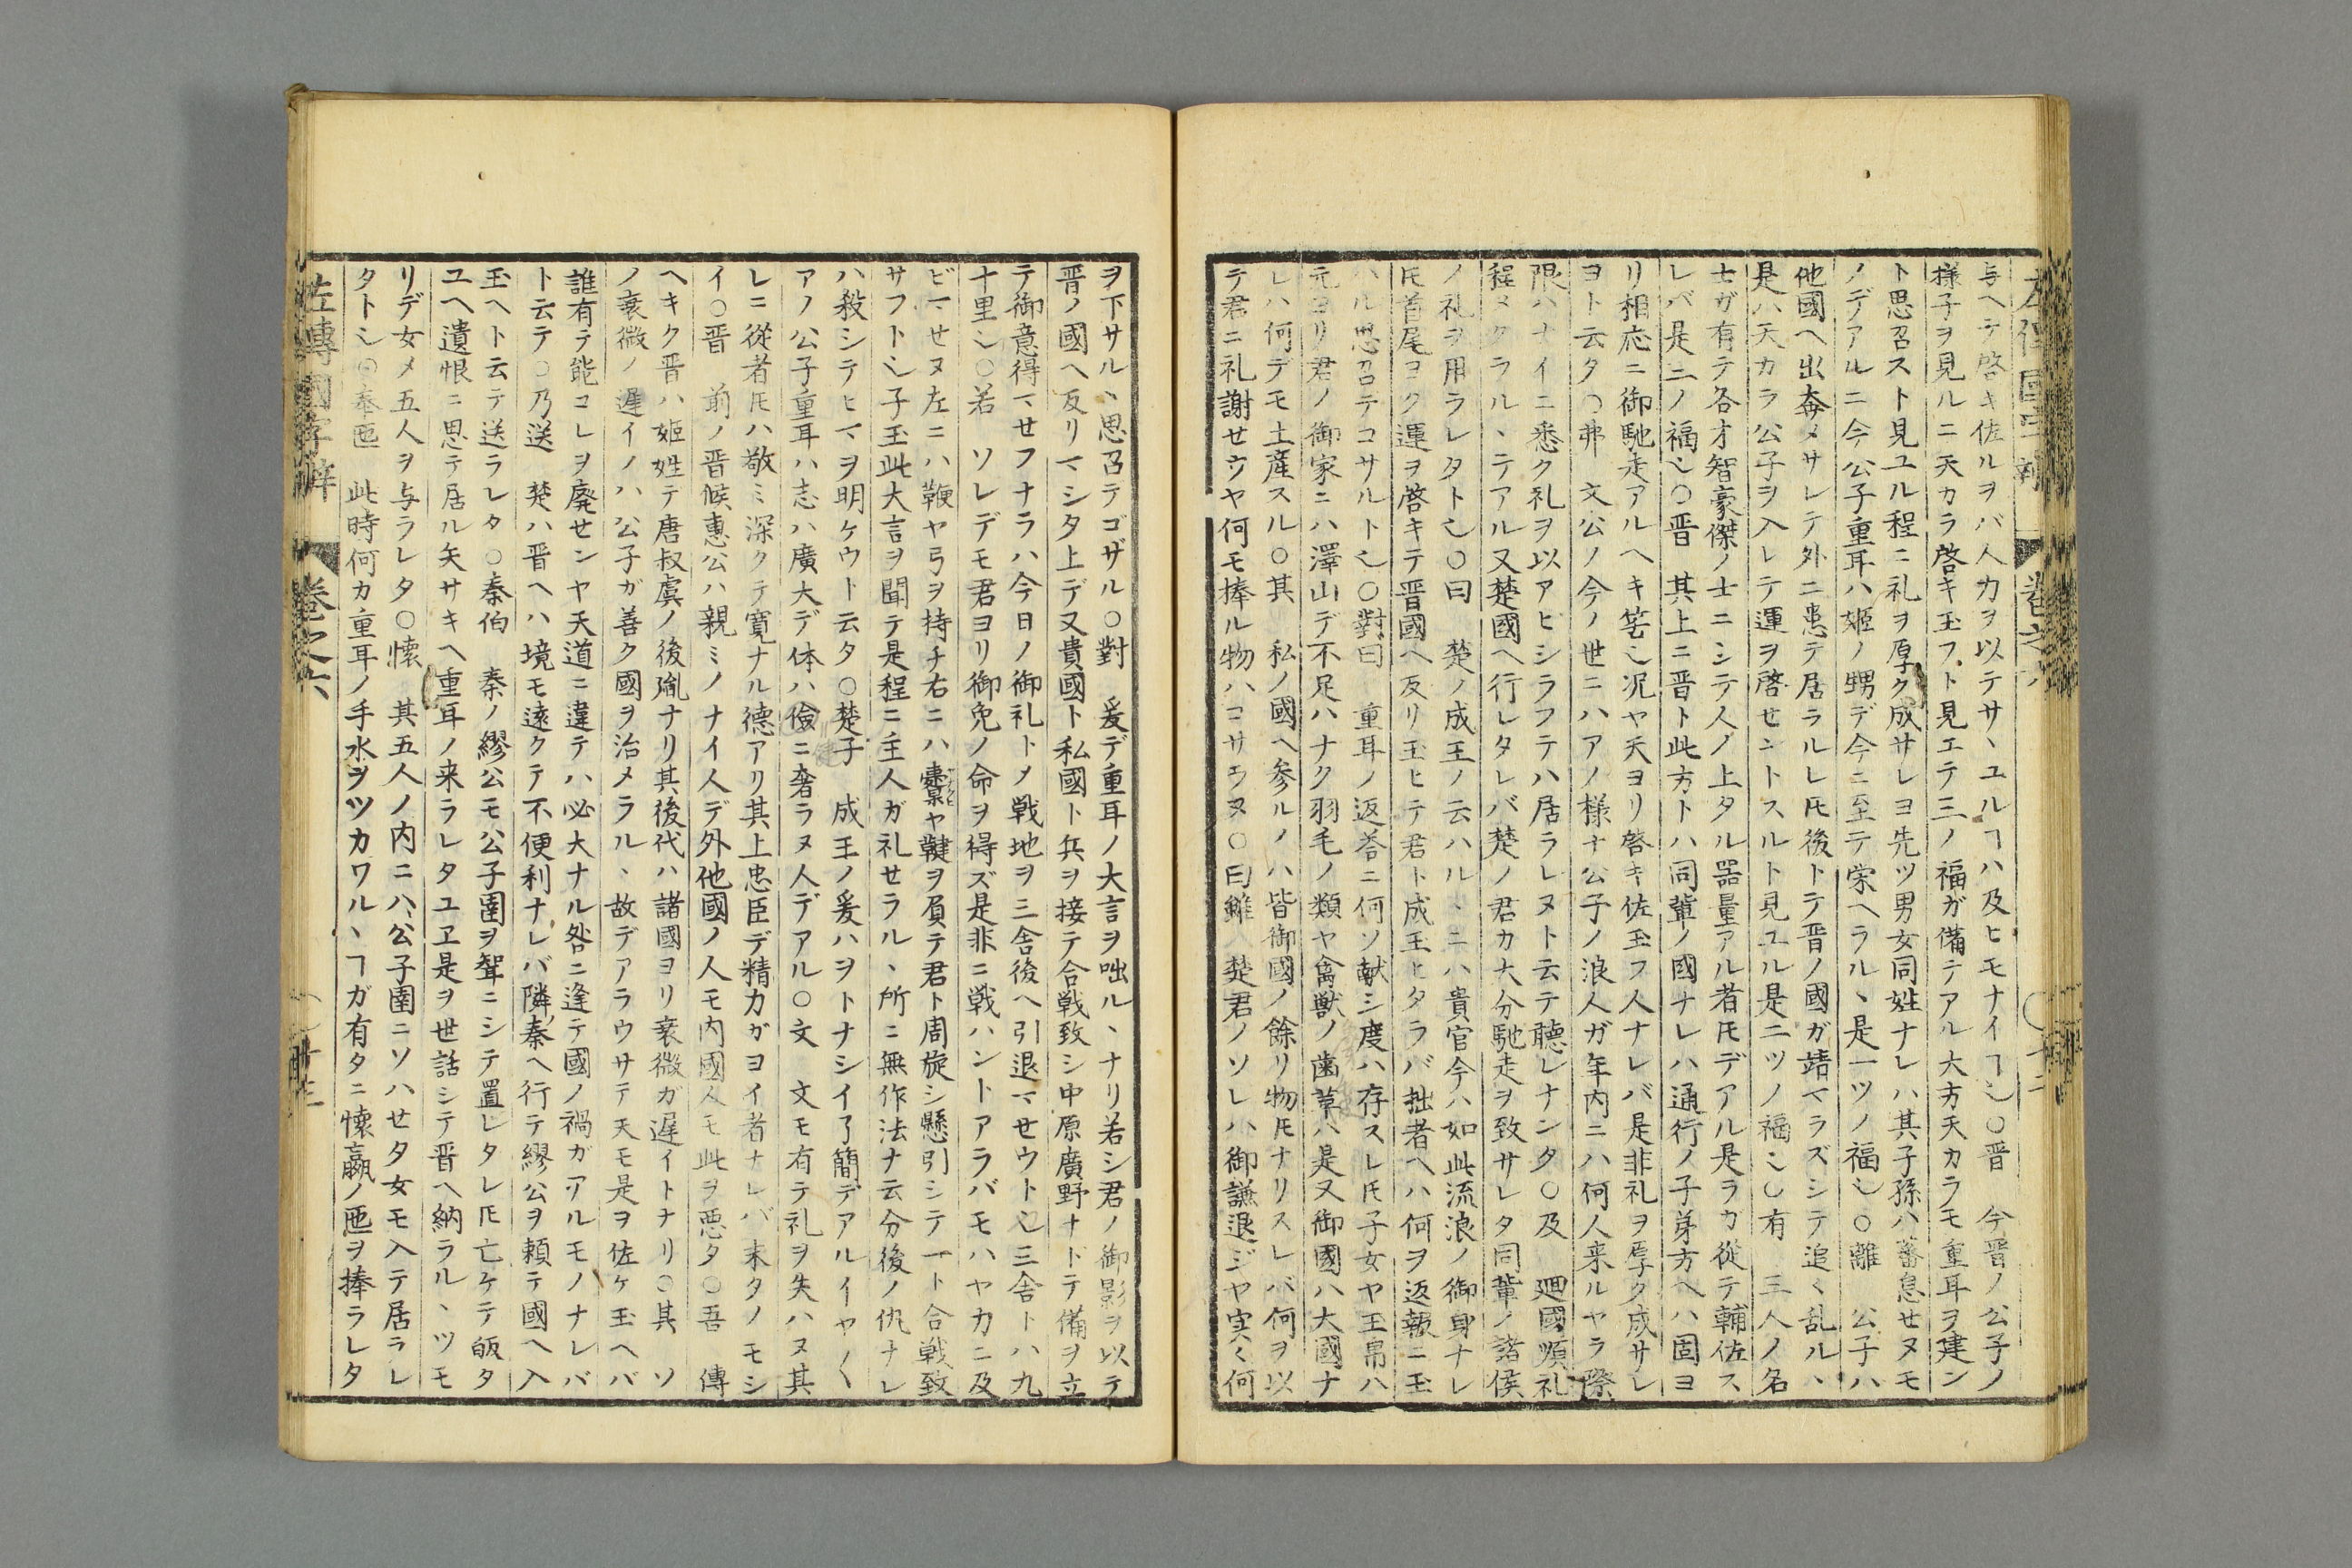 左傳國字解 卷之六
与ヘテ啓キ佐ルヲバ人力ヲ以テサヽユルヿハ及ヒモナイヿ也○晋 今晋ノ公子ノ
様子ヲ見ルニ天カラ啓キ玉フト見エテ三ノ福ガ備テアル大方天カラモ重耳ヲ建ン
ト思召スト見ユル程ニ礼ヲ厚ク成サレヨ先ツ男女同姓ナレハ其子孫ハ蕃息せヌモ
ノデアルニ今公子重耳ハ姬ノ甥デ今ニ至テ栄ヘラルヽ是一ツノ福也○離 公子ハ
他國ヘ出奔メサレテ外ニ患テ居ラルレ𪜈後トテ晋ノ國ガ靖マラズシテ追々乱ルハ
是ハ天カラ公子ヲ入レテ運ヲ啓せントスルト見ユル是ニツノ福也○有 三人ノ名
士ガ有テ各才智豪傑ノ士ニシテ人ノ上タル噐量アル者𪜈デアル是ラガ從テ輔佐ス
レバ是三ノ福也○晋 其上ニ晋ト此方トハ同輩ノ國ナレハ通行ノ子弟方ヘハ固ヨ
リ相応ニ御馳走アルヘキ筈也况ヤ天ヨリ啓キ佐玉フ人ナレバ是非礼ヲ厚ク成サレ
ヨト云タ○弗 文公ノ今ノ世ニハアノ様ナ公子ノ浪人ガ年内ニハ何人来ルヤラ際
限ハナイニ悉ク礼ヲ以アヒシラフテハ居ラレヌト云テ聴レナンタ○及 廻國順礼
程メクラルヽテアル又楚國ヘ行レタレバ楚ノ君カ大分馳走ヲ致サレタ同輩ノ諸侯
ノ礼ヲ用ラレタト也○曰 楚ノ成王ノ云ハルヽニハ貴官今ハ如此流浪ノ御身ナレ
𪜈首尾ヨク運ヲ啓キテ晋國ヘ反リ玉ヒテ君ト成玉ヒタラバ拙者ヘハ何ヲ返報ニ玉
ハル思召テコサルト也○對曰 重耳ノ返荅ニ何ソ献シ度ハ存スレ𪜈子女ヤ玉帛ハ
元ヨリ君ノ御家ニハ澤山デ不足ハナク羽毛ノ類ヤ禽獣ノ歯革ハ是又御國ハ大國ナ
レハ何デモ土産スル○其 私ノ國ヘ参ルノハ皆御國ノ餘リ物𪜈ナリスレバ何ヲ以
テ君ニ礼謝せウヤ何モ捧ル物ハコサラヌ○曰雖 楚君ノソレハ御謙退ジヤ実々何
ヲ下サルヽ思召テゴザル○對 爰デ重耳ノ大言ヲ咄ルヽナリ若シ君ノ御影ヲ以テ
晋ノ國ヘ反リマシタ上デ又貴國ト私國ト兵ヲ接テ合戦致シ中原廣野ナドテ備ヲ立
テ御意得マせフナラハ今日ノ御礼トメ戦地ヲ三舎後ヘ引退マせウト也三舎トハ九
十里也○若 ソレデモ君ヨリ御免ノ命ヲ得ズ是非ニ戦ハントアラバモハヤカニ及
ビマせヌ左ニハ鞭ヤ弓ヲ持チ右ニハ櫜ヤ鞬ヲ負テ君ト周旋シ懸引シテ一ト合戦致
サフト也子玉此大言ヲ聞テ是程ニ主人ガ礼せラルヽ所ニ無作法ナ云分後ノ仇ナレ
ハ殺シテヒマヲ明ケウト云タ○楚子 成王ノ爰ハヲトナシイ了簡デアルイヤ〱
アノ公子重耳ハ志ハ廣大デ体ハ儉ニ奢ラヌ人デアル○文 文モ有テ礼ヲ失ハヌ其
レニ從者𪜈ハ敬ミ深クテ寛ナル德アリ其上忠臣デ精力ガヨイ者ナレバ末タノモシ
イ○晋 前ノ晋候惠公ハ親ミノナイ人デ外他國ノ人モ内國人モ此ヲ悪タ○吾 傳
ヘキク晋ハ姬姓テ唐叔虞ノ後胤ナリ其後代ハ諸國ヨリ衰微ガ遅イトナリ○其 ソ
ノ衰微ノ遅イノハ公子ガ善ク國ヲ治メラルヽ故デアラウサテ天モ是ヲ佐ケ玉ヘバ
誰有テ能コレヲ廃せンヤ天道ニ違テハ必大ナル咎ニ逢テ國ノ禍ガアルモノナレバ
ト云テ○乃送 楚ハ晋ヘハ境モ遠クテ不便利ナレバ隣秦ヘ行テ繆公ヲ頼テ國ヘ入
玉ヘト云テ送ラレタ○秦伯 秦ノ繆公モ公子圉ヲ聟ニシテ置レタレ𪜈亡ケテ皈タ
ユヘ遺恨ニ思テ居ル矢サキヘ重耳ノ来ラレタユヱ是ヲ世話シテ晋ヘ納ラルヽツモ
リデ女メ五人ヲ与ラレタ○懷 其五人ノ内ニハ公子圉ニソハせタ女モ入テ居ラレ
タト也○奉匜 此時何カ重耳ノ手水ヲツカワルヽヿガ有タニ懷嬴ノ匜ヲ捧ラレタ
左傳國字解 卷之六